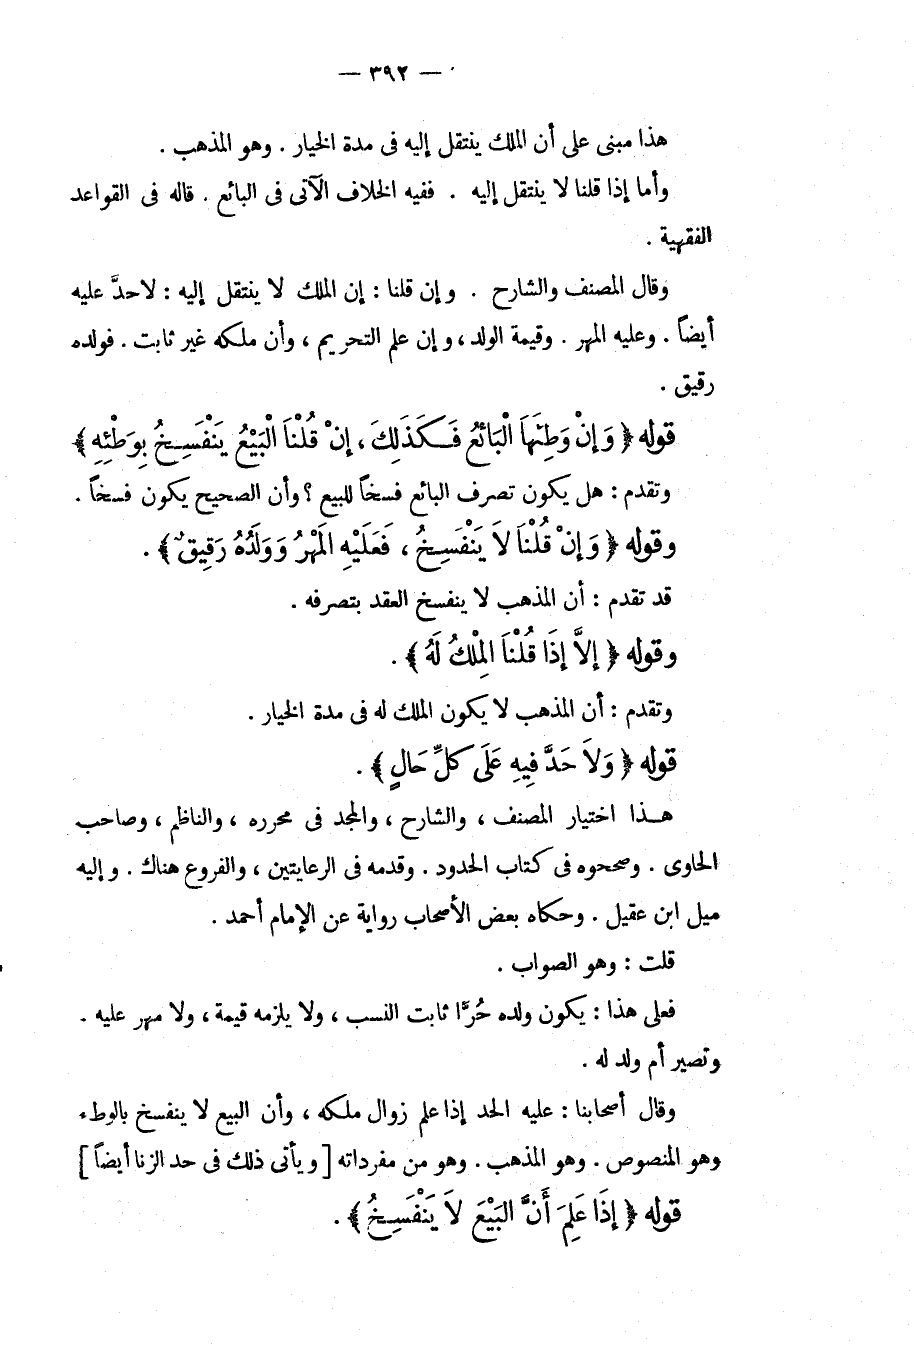 — ٣٩٢ —
هذا مبنى على أن الملك ينتقل إليه فى مدة الخيار . وهو المذهب .
وأما إذا قلنا لا ينتقل إليه . ففيه الخلاف الآتى فى البائع . قاله فى القواعد
الفقهية .
وقال المصنف والشارح . وإن قلنا : إن الملك لا ينتقل إليه : لاحدَّ عليه
أيضاً . وعليه المهر . وقيمة الولد ، وإن علم التحريم ، وأن ملكه غير ثابت . فولده
رقيق .
قوله ﴿ وَإِنْ وَطِئَهَا الْبَائِعُ فَـكَذَلِكَ ، إِنْ قُلْنَا الْبَيْعُ يَنْفَسِـخُ بِوَطْئِهِ ﴾
وتقدم : هل يكون تصرف البائع فسخاً للبيع ؟ وأن الصحيح يكون فسخاً .
وقوله ﴿ وَإِنْ قُلْنَا لاَ يَنْفَسِـخُ ، فَعَلَيْهِ المَهْرُ وَوَلَدُهُ رَقِيقٌ ﴾ .
قد تقدم : أن المذهب لا ينفسخ العقد بتصرفه .
وقوله ﴿ إِلاَّ إِذَا قُلْنَا المِلْكُ لَهُ ﴾ .
وتقدم : أن المذهب لا يكون الملك له فى مدة الخيار .
قوله ﴿ وَلاَ حَدَّ فِيهِ عَلَى كلِّ حَالٍ ﴾ .
هـذا اختيار المصنف ، والشارح ، والمجد فى محرره ، والناظم ، وصاحب
الحاوى . وصححوه فى كتاب الحدود . وقدمه فى الرعايتين ، والفروع هناك . وإليه
ميل ابن عقيل . وحكاه بعض الأصحاب رواية عن الإمام أحمد .
قلت : وهو الصواب .
فعلى هذا : يكون ولده حُرًّا ثابت النسب ، ولا يلزمه قيمة ، ولا مهر عليه .
وتصير أم ولد له .
وقال أصحابنا : عليه الحد إذا علم زوال ملكه ، وأن البيع لا ينفسخ بالوطء
وهو المنصوص . وهو المذهب . وهو من مفرداته [ ويأتى ذلك فى حد الزنا أيضاً ]
قوله ﴿ إِذَا عَلِمَ أَنَّ البَيْعَ لاَ يَنْفَسِـخُ ﴾ .